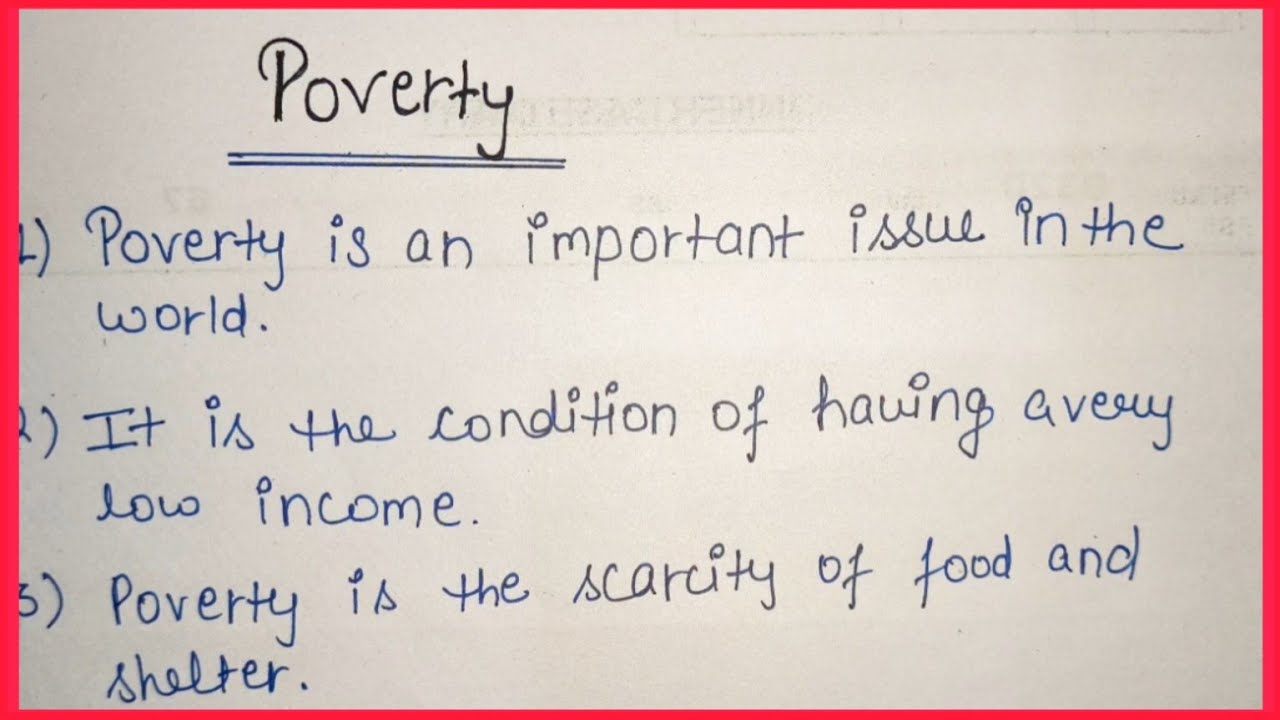 Poverty
1) Poverty is an important issue in the
world.
2) It is the condition of having a very
low income.
3) Poverty is the scarcity of food and
shelter.